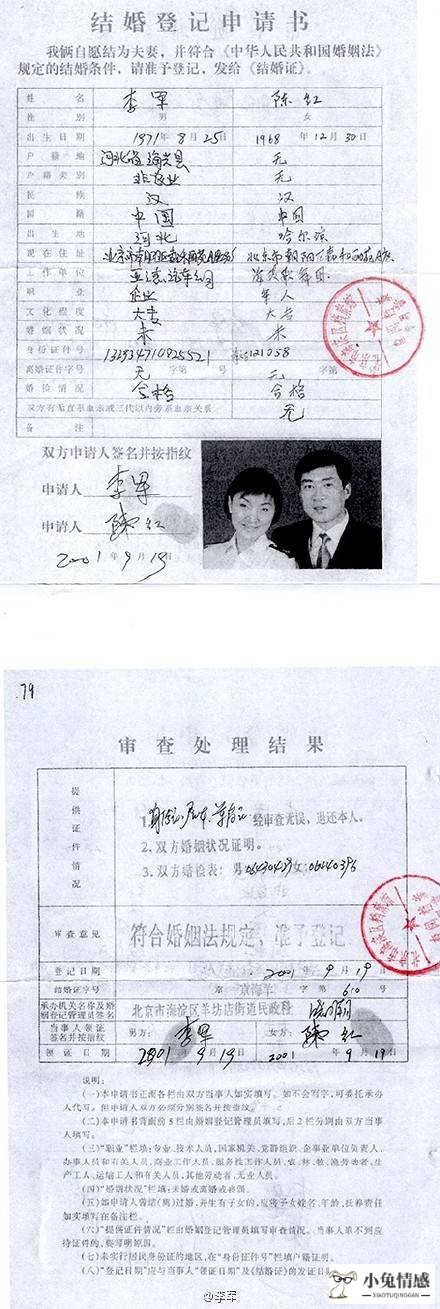 结婚登记申请书
我俩自愿结为夫妻,并符合《中华人民共和国婚姻法》
规定的结婚条件,请准予登记,发给《结婚证》。
姓名 李军 陈红
性别 男 女
出生日期 1971年8月25日 1968年12月30日
户籍地 无
户籍类别 非农业 无
民族 汉 汉
国籍 中国 中国
出生地 河北 哈尔滨
现在住址
工作单位
职业 企业 军人
文化程度 大专 大专
婚姻状况 未 未
身份证件号
离婚证件号 无 字第 号 无 字第 号
婚检情况 合格 合格
双方有无直系血亲或三代以内旁系血亲关系 无
备注
双方申请人签名并按指纹
申请人 李军
申请人 陈红
2001年9月19日
79
审查处理结果
提供证件情况
1. 经审查无误,退还本人。
2.双方婚姻状况证明。
3.双方婚检表:男 女
审查意见 符合婚姻法规定,准予登记
登记日期 2001年9月19日
结婚证字号 京海羊 字第 610 号
承办机关名称及婚
姻登记管理员签名 北京市海淀区羊坊店街道民政科
当事人领证
签名并按指纹 男方: 李军 女方: 陈红
领证日期 2001年9月19日 2001年9月19日
说明:
(一)本申请书正面各栏由双方当事人如实填写。如不会写字,可委托承办
人代写。但申请人双方必须分别签名并按指纹。
(二)本申请书背面前5栏由婚姻登记管理员填写,后2栏分别由双方当事
人填写。
(三)“职业”栏填:专业、技术人员,国家机关、党群组织、企事业单位负责人,
办事人员和有关人员,商业工作人员,服务性工作人员,农、林、牧、渔劳动者,生
产工人、运输工人和有关人员,其他劳动者,无业人员。
(四)“婚姻状况”栏填:未婚或离婚或丧偶。
(五)如申请人曾结(离)过婚,并生有子女的,应将子女姓名、年龄、抚养责任
如实填写在备注栏。
(六)“提供证件情况”栏由婚姻登记管理员填写审查情况。当事人单不到应
待证件的,要写明原因。
(七)未实行居民身份证的地区,在“身份证件号”栏填户籍证明。
(八)“登记日期”应与当事人“领证日期”及《结婚证》的发证日
@李军
小兔情感
XIAOTUQINGGAN